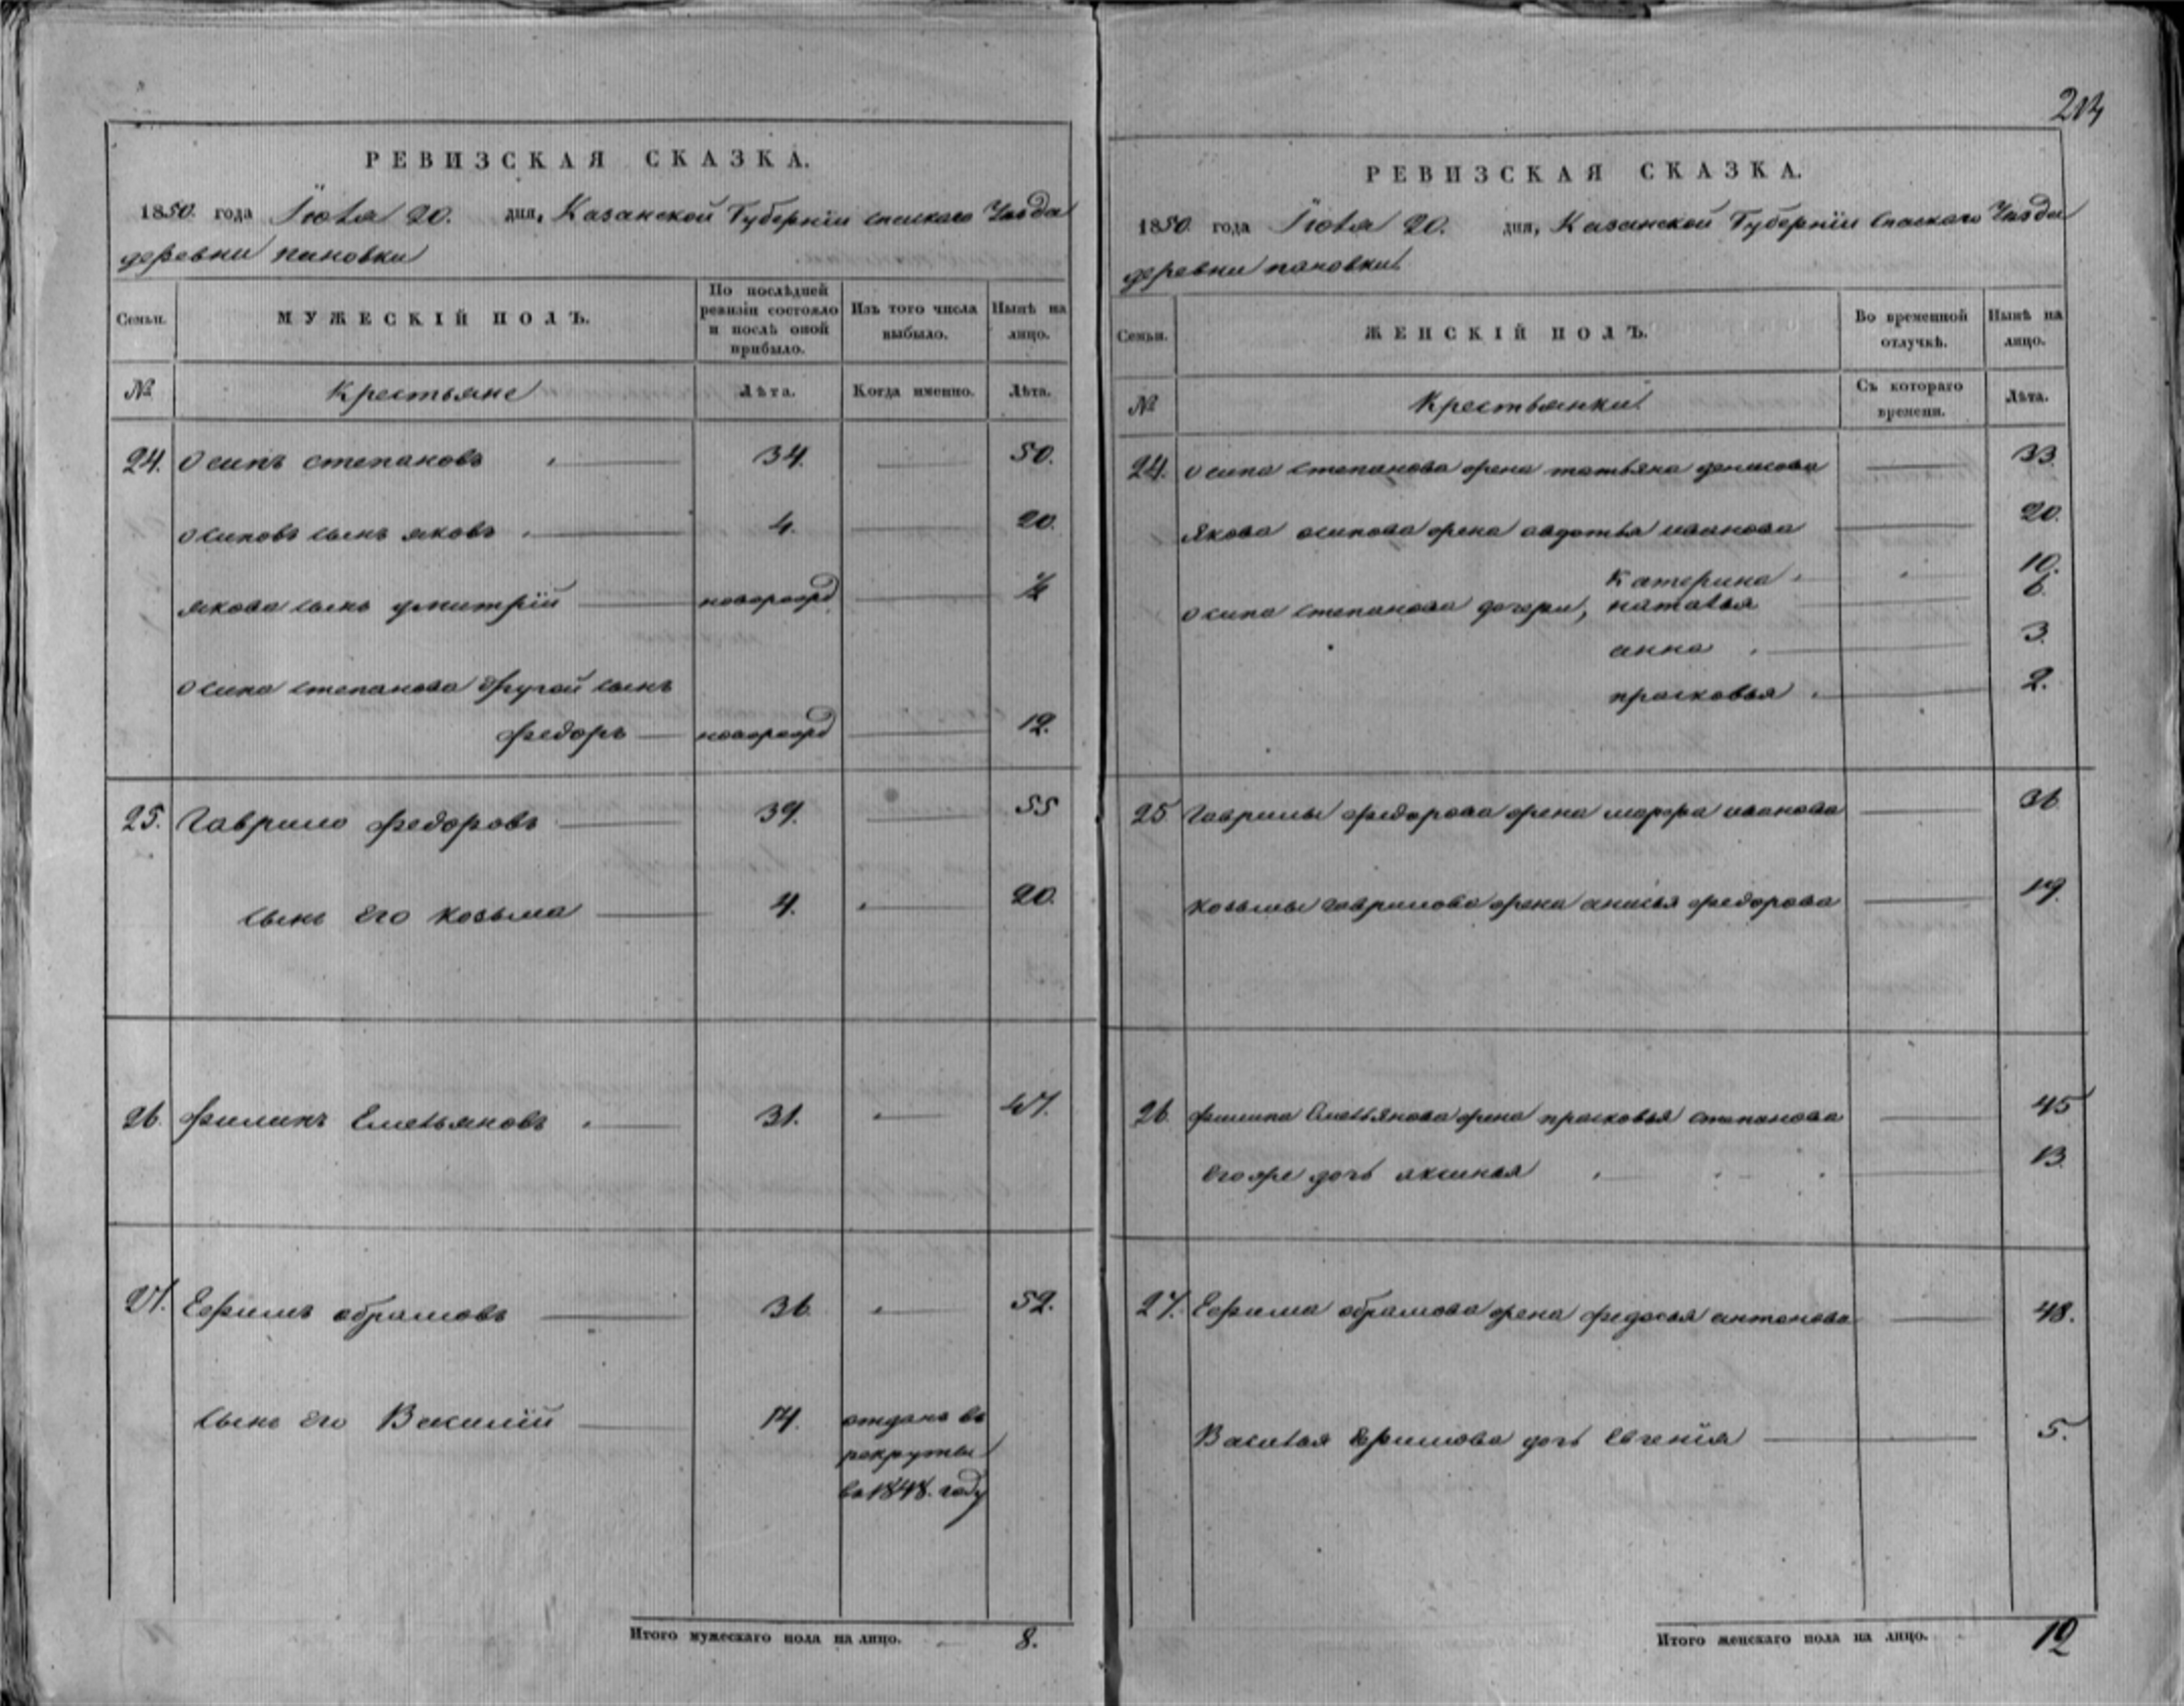 214
РЕВИЗСКАЯ СКАЗКА.
1850. года Іюля 20. дня, Казанской Губерніи Спаскаго Уѣзда
деревни пановки
Семьи.
МУЖЕСКІЙ ПОЛЪ.
По послѣдней ревизіи состояло и послѣ оной прибыло.
Изъ того числа выбыло.
Нынѣ на лицо.
№
Крестьяне
Лѣта.
Когда именно.
Лѣта.
24. Осипъ степановъ 34. 50.
осиповъ сынъ яковъ 4. 20.
якова сынъ дмитрій новорожд ½
осипа степанова другой сынъ
федоръ новорожд 12.
25. Гаврило федоровъ 39. 55
сынъ его козьма 4. 20.
26. филипъ Емельяновъ 31. 47.
27. Ефимъ абрамовъ 36. 52.
сынъ его Василій 14. отданъ въ
рекруты
въ 1848. году
Итого мужескаго пола на лицо. 8.
РЕВИЗСКАЯ СКАЗКА.
1850. года Іюля 20. дня, Казанской Губерніи Спаскаго Уѣзда
деревни пановки
Семьи.
ЖЕНСКІЙ ПОЛЪ.
Во временной отлучкѣ.
Нынѣ на лицо.
№
Крестьянки
Съ котораго времени.
Лѣта.
24. Осипа степанова жена татьяна денисова 33.
якова осипова жена авдотья иванова 20.
Катерина 10.
осипа степанова дочери, наталья 6.
анна 3.
прасковья 2.
25 Гаврилы федорова жена марфа иванова 36
козьмы гаврилова жена анисья федорова 19.
26. филипа Емельянова жена прасковья степанова 45
Его же дочь аксинья 13.
27. Ефима абрамова жена федосья антонова 48.
Василья Ефимова дочь Евгенія 5.
Итого женскаго пола на лицо. 12